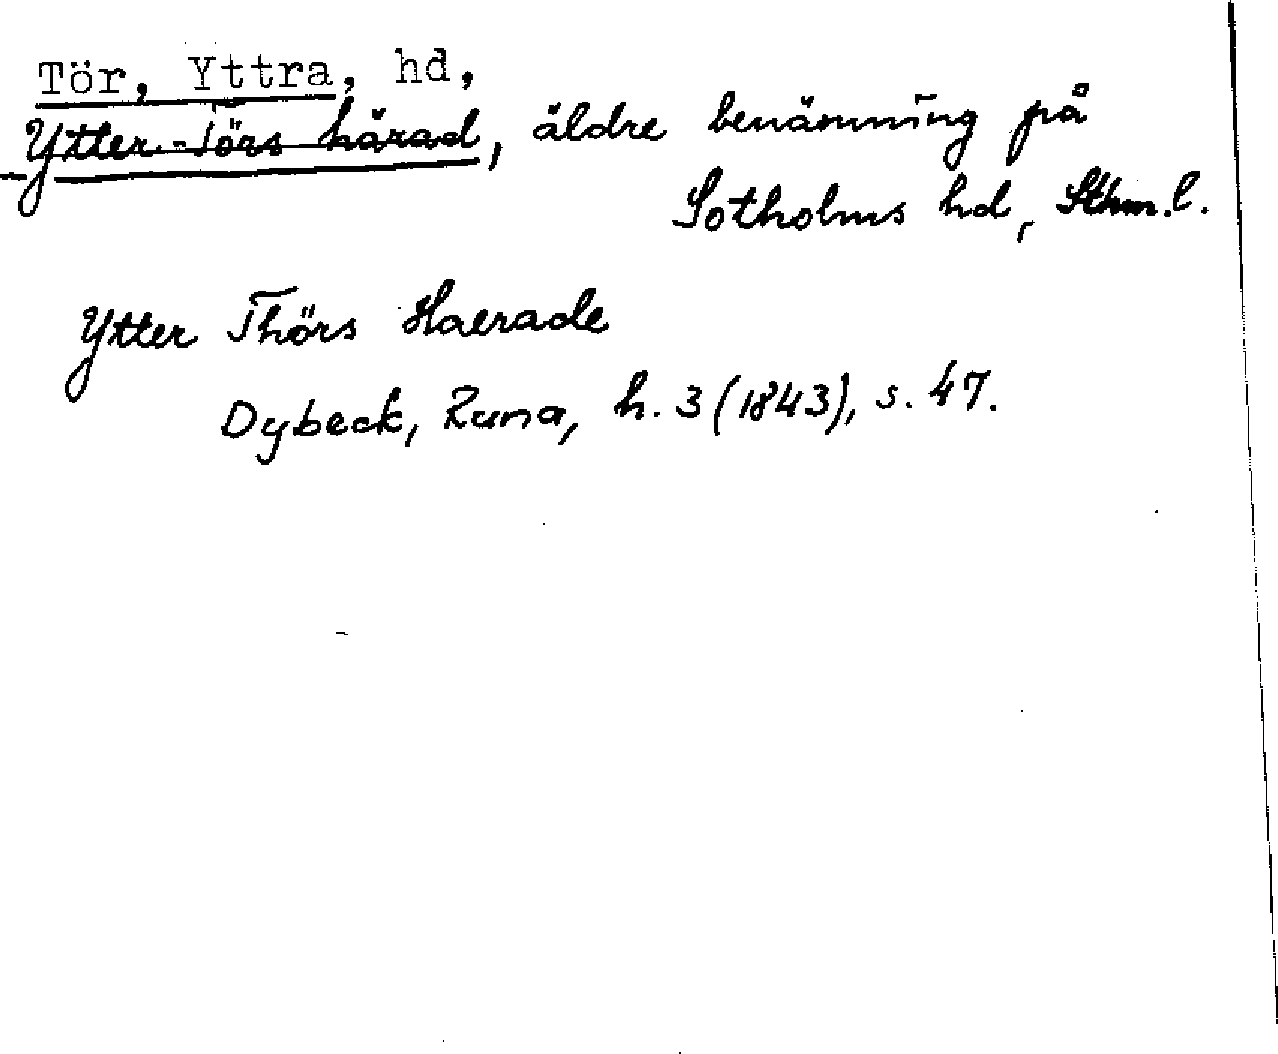 Tör, Yttra, hd,
Ytter-Törs härad, äldre benämning på
Sotholms hd, Sthm.l.
Ytter Thörs Haerade
Dybeck, Runa, h. 3 (1843), s. 47.